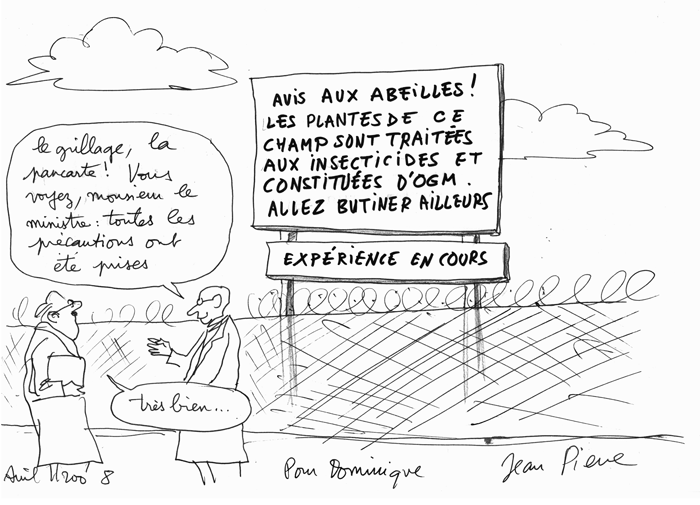 AVIS AUX ABEILLES!
LES PLANTES DE CE
CHAMP SONT TRAITÉES
AUX INSECTICIDES ET
CONSTITUÉES D'OGM.
ALLEZ BUTINER AILLEURS
EXPÉRIENCE EN COURS
le grillage, la
pancarte! Vous
voyez, monsieur le
ministre: toutes les
précautions ont
été prises
très bien...
Avril 8
Pour Dominique
Jean Pierre